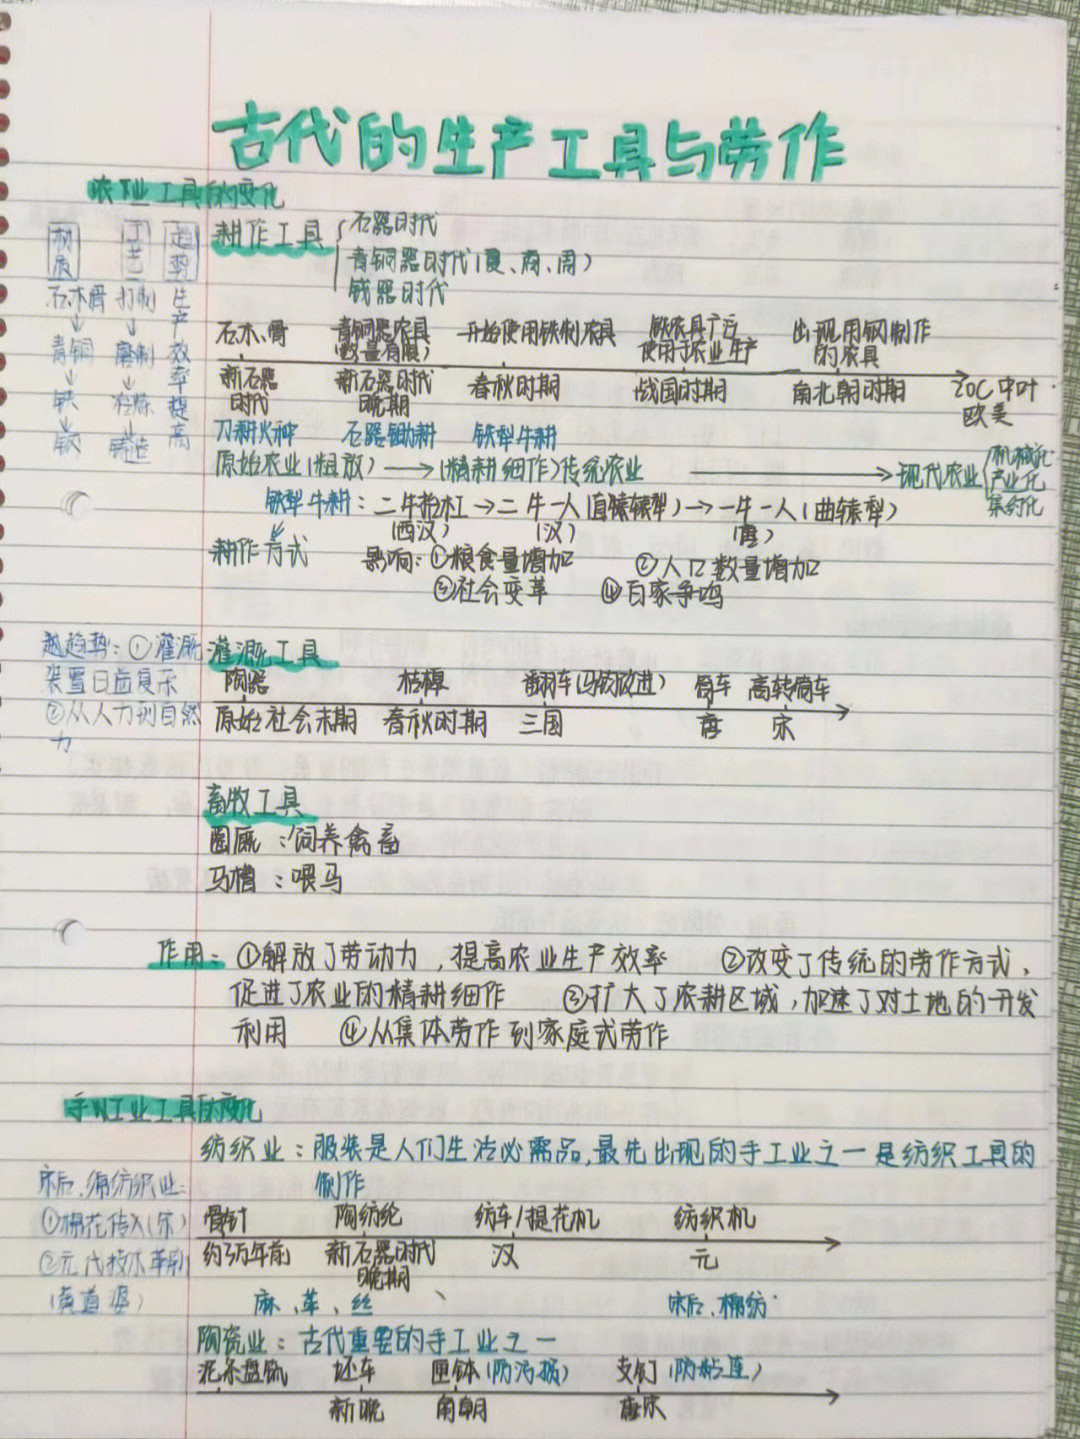 古代的生产工具与劳作
农业工具的变化
材质 工艺 趋势
石木骨 打制 生产效率提高
青铜 磨制
铁 冶炼
钢 铸造
耕作工具
石器时代
青铜器时代(夏、商、周)
铁器时代
石木、骨 青铜器农具(数量有限) 开始使用铁制农具 铁农具广泛使用于农业生产 出现用钢制作的农具
新石器时代 新石器时代晚期 春秋时期 战国时期 南北朝时期 20C中叶欧美
刀耕火种 石器锄耕 铁犁牛耕
原始农业(粗放)→(精耕细作)传统农业→现代农业 机械化 产业化 集约化
铁犁牛耕:二牛抬杠→二牛一人(直辕犁)→一牛一人(曲辕犁)
(西汉) (汉) (唐)
耕作方式 影响:①粮食量增加 ②人口数量增加
③社会变革 ④百家争鸣
趋势:①灌溉
装置日益复杂
②从人力到自然
力
灌溉工具
陶器 桔槔 翻车(马钧改进) 筒车 高转筒车
原始社会末期 春秋时期 三国 唐 宋
畜牧工具
圈厩:饲养禽畜
马槽:喂马
作用:①解放了劳动力,提高农业生产效率 ②改变了传统的劳作方式,
促进了农业的精耕细作 ③扩大了农耕区域,加速了对土地的开发
利用 ④从集体劳作到家庭式劳作
手工业工具的变化
纺织业:服装是人们生活必需品,最先出现的手工业之一是纺织工具的
制作
宋后、棉纺织业:
①棉花传入(宋)
②元代技术革新
(黄道婆)
骨针 陶纺纶 纺车/提花机 纺织机
约3万年前 新石器时代晚期 汉 元
麻、革、丝、 宋后、棉纺
陶瓷业:古代重要的手工业之一
泥条盘筑 坯车 匣钵(防污损) 支钉(防粘连)
新晚 南朝 唐宋